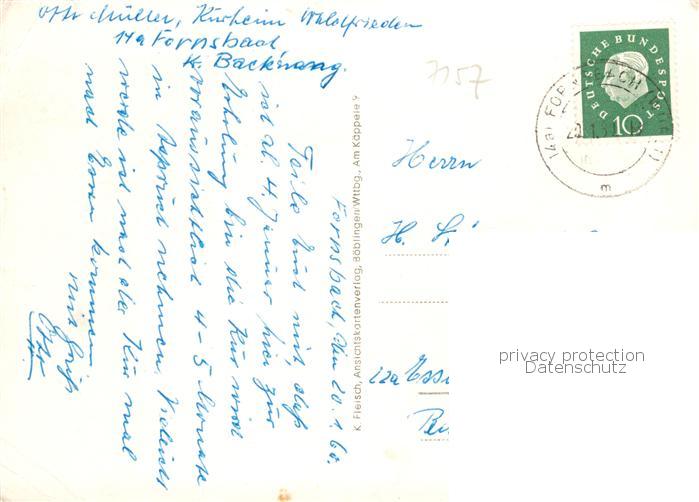 Otto Müller, Kurheim Waldfrieden
14a Fornsbach
K. Backnang.
7157
DEUTSCHE BUNDESPOST
10
(14a) FORNSBACH
m
Fornsbach, den 20.1.60.
Teile Euch mit, daß
ich ab 4. Januar hier zur
Erholung bin die Kur wird
voraussichtlich 4-5 Monate
in Anspruch nehmen. Vieleicht
werde ich nach der Kur mal
nach Essen kommen
mit Gruß
Otto
K. Fleisch, Ansichtskartenverlag, Böblingen/Wttbg., Am Käppele 9
Herrn
H.
22a Esse
privacy protection
Datenschutz